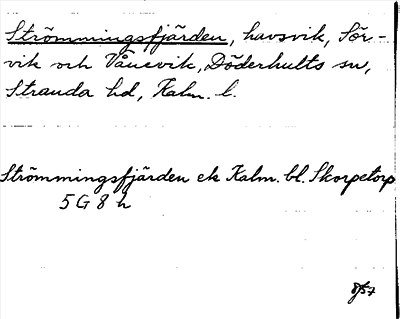 Strömmingsfjärden, havsvik, Sör-
vik och Vånevik, Döderhults sn,
Stranda hd, Kalm. l.
Strömmingsfjärden ek Kalm. bl. Skorpetorp
5 G 8 h